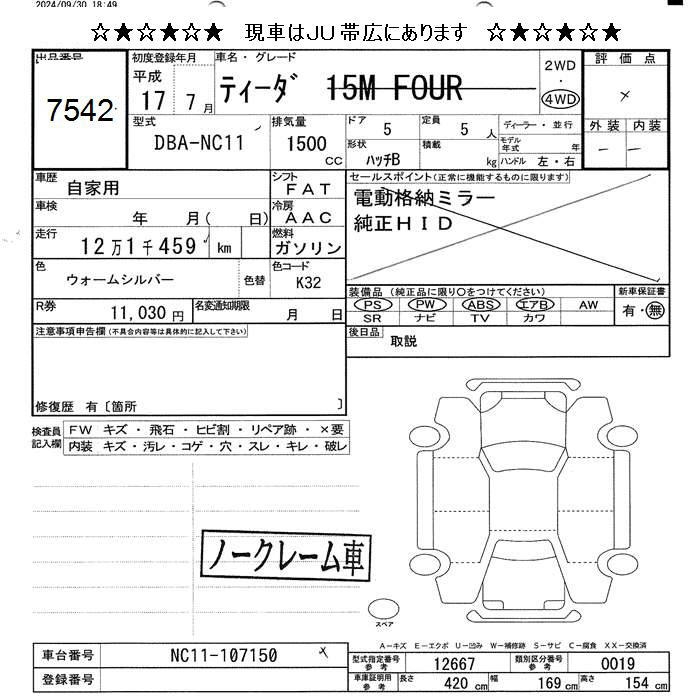 2024/09/30 18:49
☆★☆★☆★ 現車はJU帯広にあります ☆★☆★☆★
出品番号 7542
初度登録年月 平成 17 7月
車名・グレード ティーダ 15M FOUR
2WD ・ 4WD
評価点 ×
型式 DBA-NC11
排気量 1500 CC
ドア 5 定員 5 人
ディーラー・並行
外装 内装
形状 ハッチB 積載 kg
モデル年式 年
ハンドル 左・右
－ －
車歴 自家用
シフト FAT
セールスポイント(正常に機能するものに限ります)
車検 年 月( 日)
冷房 AAC
電動格納ミラー
純正HID
走行 12万1千459 km
燃料 ガソリン
色 ウォームシルバー 色替
色コード K32
装備品(純正品に限り○をつけてください)
新車保証書
PS PW ABS エアB AW
有・無
SR ナビ TV カワ
R券 11,030円
名変通知期限 月 日
後日品 取説
注意事項申告欄(不具合内容等は具体的に記入して下さい)
修復歴 有〔箇所 〕
検査員記入欄
FW キズ・飛石・ヒビ割・リペア跡・×要
内装 キズ・汚レ・コゲ・穴・スレ・キレ・破レ
ノークレーム車
スペア
A－キズ E－エクボ U－凹み W－補修跡 S－サビ C－腐食 XX－交換済
車台番号 NC11-107150 ×
登録番号
型式指定番号 参考 12667 類別区分番号 参考 0019
車庫証明用 参考 長さ 420 cm 幅 169 cm 高さ 154 cm